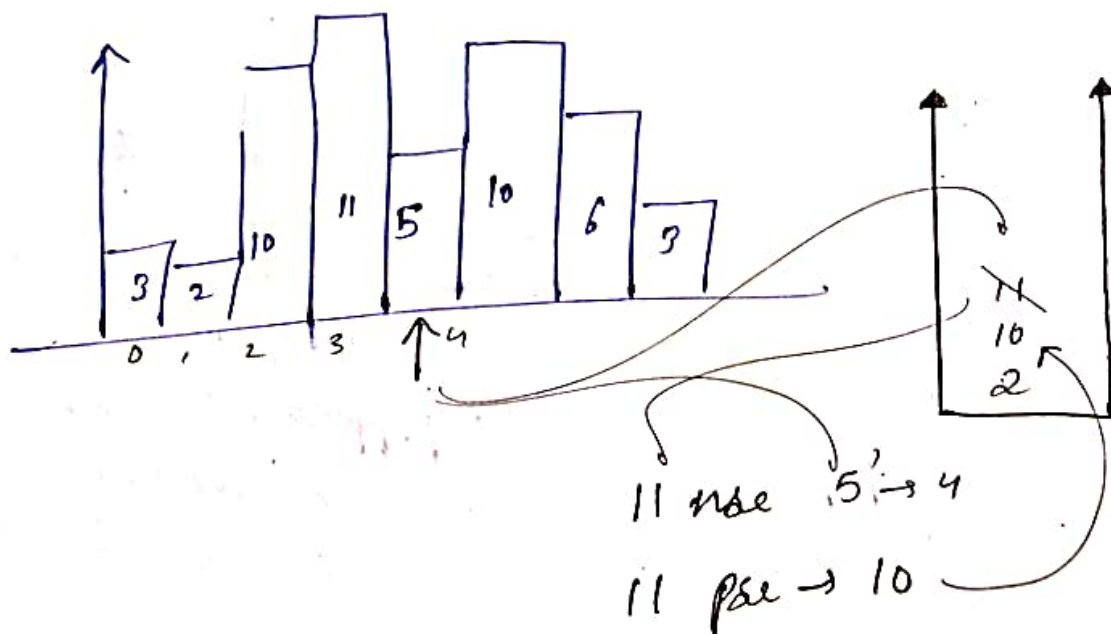 3 2 10 11 5 10 6 3
0 1 2 3 4
11
10
2
11 nse 5 → 4
11 pse → 10